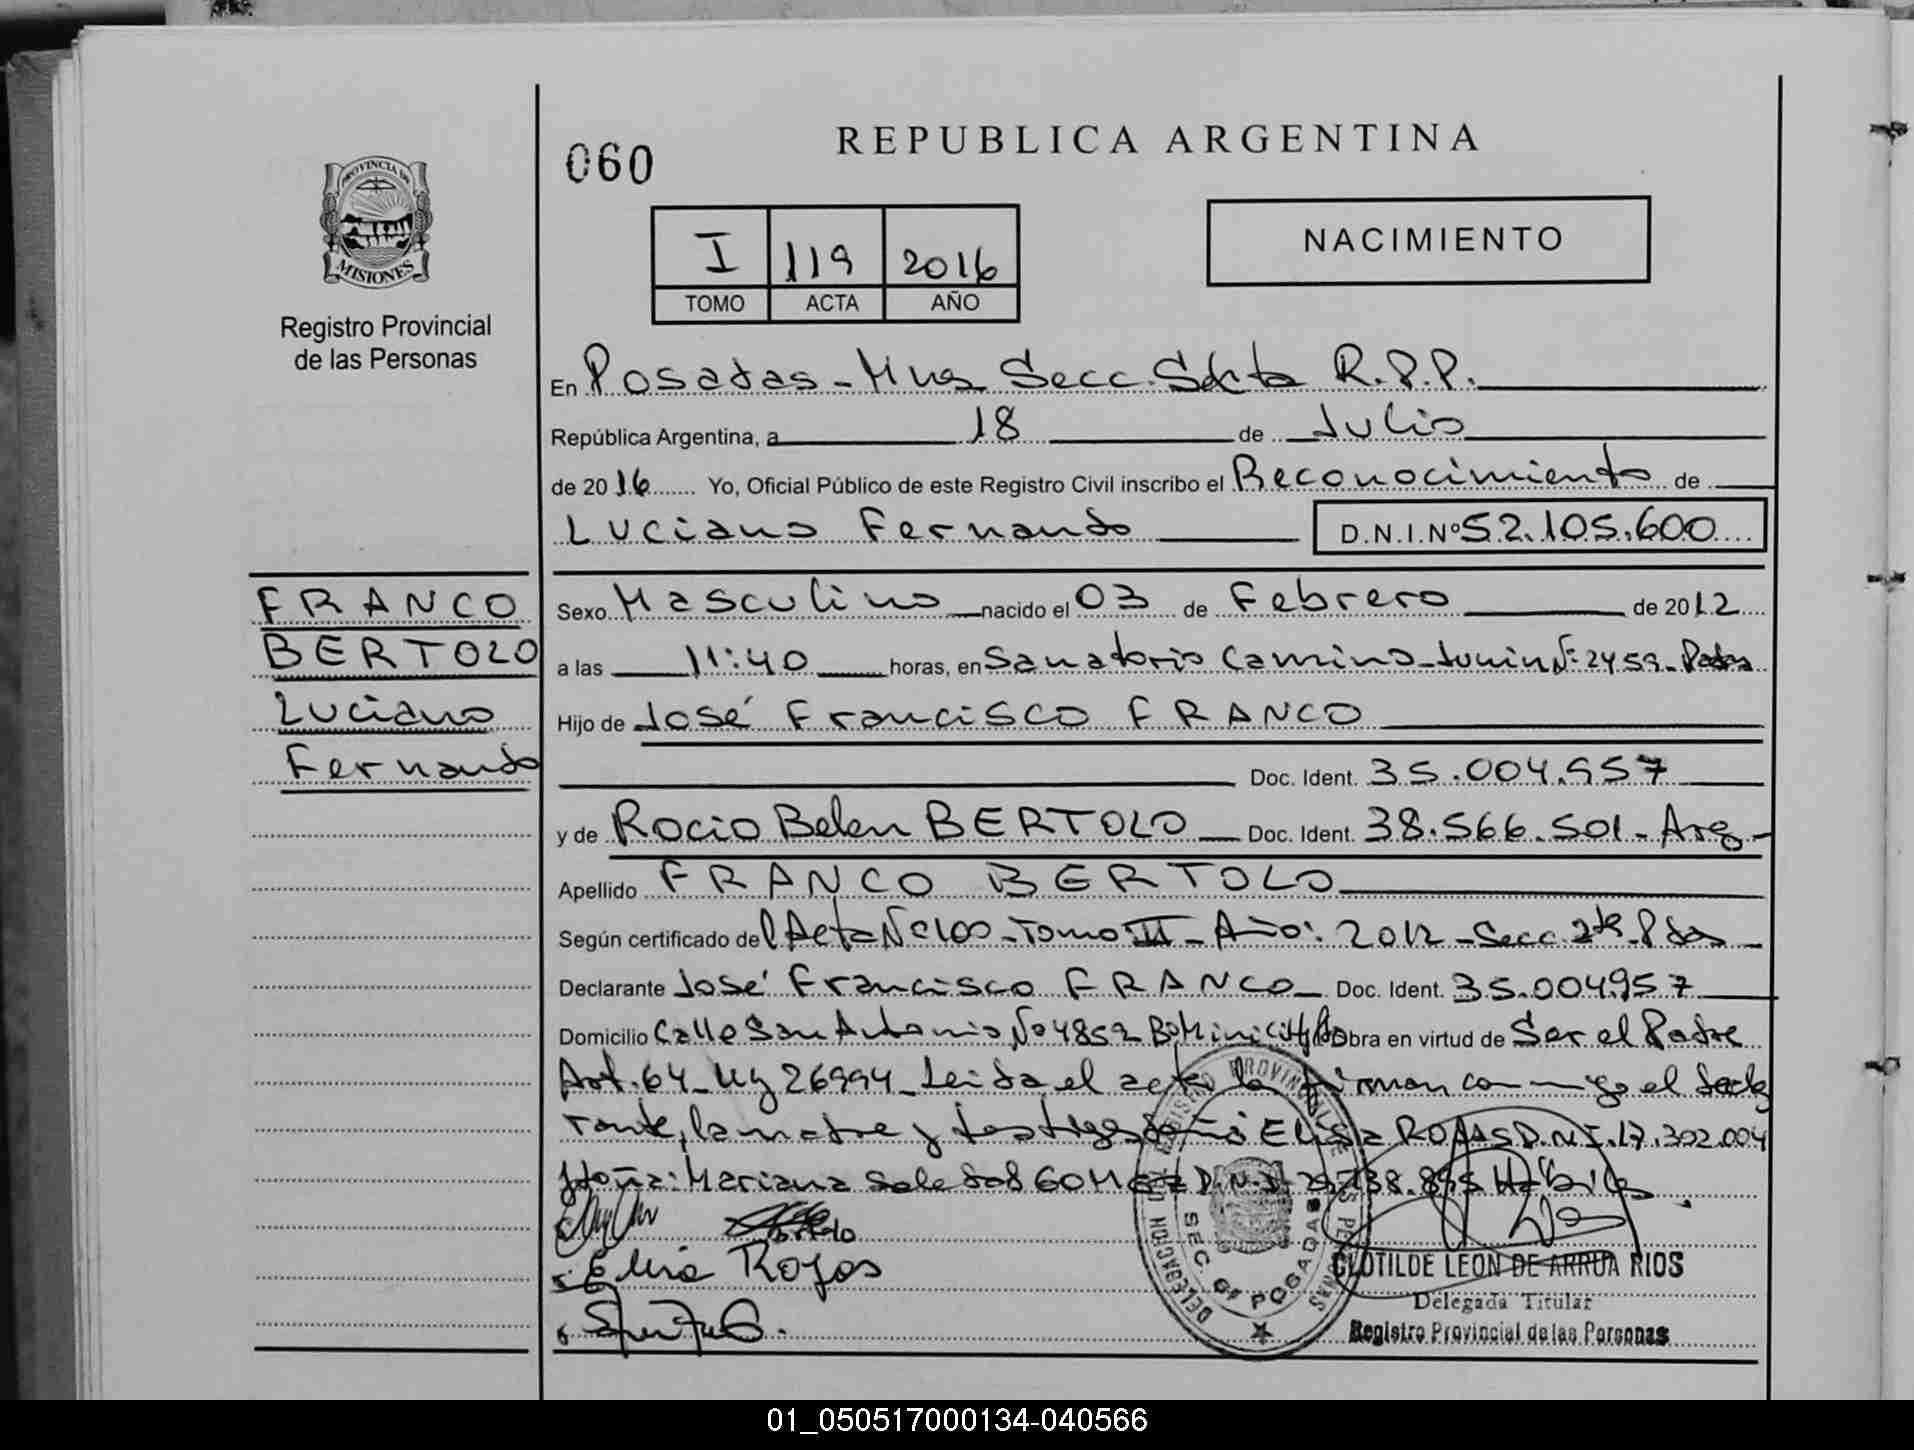 060
REPUBLICA ARGENTINA
PROVINCIA DE
MISIONES
Registro Provincial
de las Personas
I 119 2016
TOMO ACTA AÑO
NACIMIENTO
En Posadas - Mnes Secc. Sexta R.P.P.
República Argentina, a 18 de Julio
de 2016 Yo, Oficial Público de este Registro Civil inscribo el Reconocimiento de
Luciano Fernando D.N.I.Nº 52.105.600
FRANCO
BERTOLO
Luciano
Fernando
Sexo Masculino nacido el 03 de Febrero de 2012
a las 11:40 horas, en Sanatorio Camino - Junin Nº 2459 - Pdas
Hijo de José Francisco FRANCO
Doc. Ident. 35.004.957
y de Rocio Belen BERTOLO Doc. Ident. 38.566.501 - Arg -
Apellido FRANCO BERTOLO
Según certificado del Acta Nº 100 - Tomo III - Año: 2012 - Secc. 2da Pdas
Declarante José Francisco FRANCO Doc. Ident. 35.004957
Domicilio Calle San Antonio Nº 4852 Bº Mini City Obra en virtud de Ser el Padre
Art. 64 - Ley 26994 - Leida el acta la firman conmigo el decla
rante, la madre y testigos Doña Elisa ROJAS D.N.I. 17.302.004
y doña: Mariana Soledad GOMEZ D.N.I. 29.738.895 Hábiles
Elisa Rojas
DELEGACION REGISTRO PROVINCIAL DE LAS PERSONAS
SEC. 6ª POSADAS
CLOTILDE LEON DE ARRUA RIOS
Delegada Titular
Registro Provincial de las Personas
01_050517000134-040566